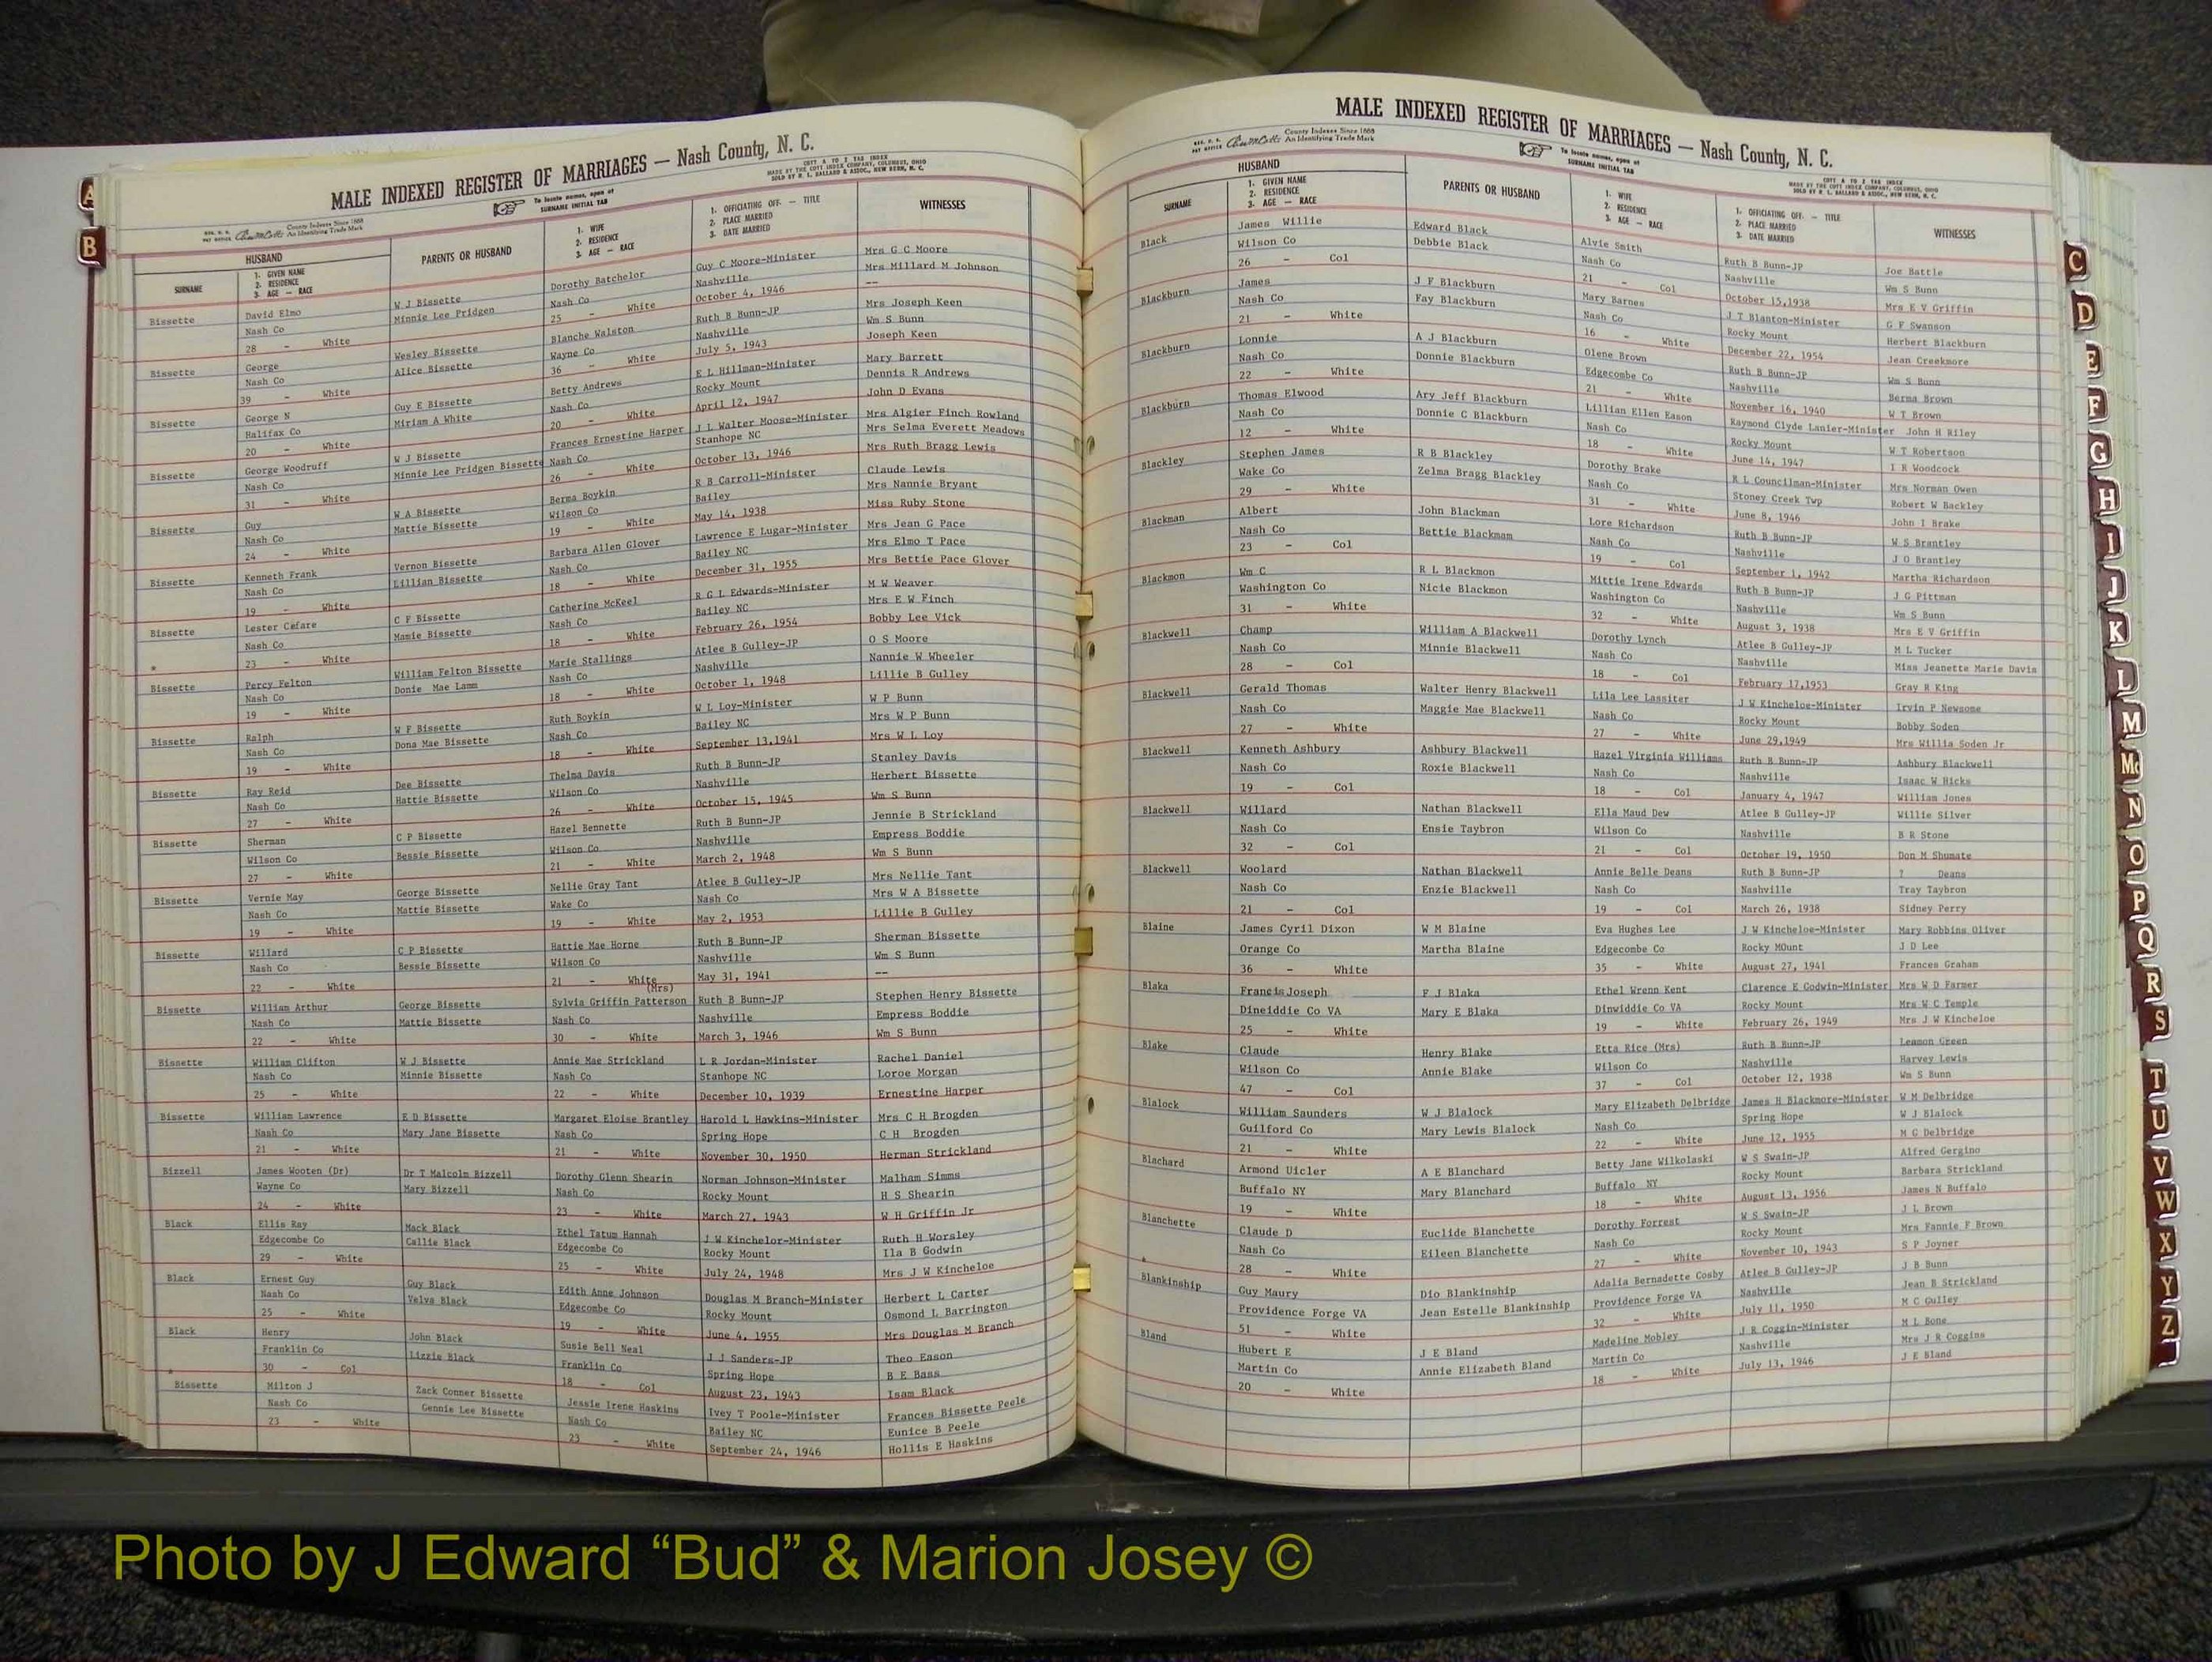 MALE INDEXED REGISTER OF MARRIAGES — Nash County, N. C.
County Indexes Since 1888
An Identifying Trade Mark
To locate names, open at
SURNAME INITIAL TAB
COTT A TO Z TAB INDEX
MADE BY THE COTT INDEX COMPANY, COLUMBUS, OHIO
SOLD BY R. L. BALLARD & ASSOC., NEW BERN, N. C.
HUSBAND
SURNAME
1. GIVEN NAME
2. RESIDENCE
3. AGE — RACE
PARENTS OR HUSBAND
1. WIFE
2. RESIDENCE
3. AGE — RACE
1. OFFICIATING OFF. — TITLE
2. PLACE MARRIED
3. DATE MARRIED
WITNESSES
Bissette David Elmo W J Bissette Dorothy Batchelor Guy C Moore-Minister Mrs G C Moore
Nash Co Minnie Lee Pridgen Nash Co Nashville Mrs Millard M Johnson
28 - White 25 - White October 4, 1946 --
Bissette George Wesley Bissette Blanche Walston Ruth B Bunn-JP Mrs Joseph Keen
Nash Co Alice Bissette Wayne Co Nashville Wm S Bunn
39 - White 36 - White July 5, 1943 Joseph Keen
Bissette George N Guy E Bissette Betty Andrews E L Hillman-Minister Mary Barrett
Halifax Co Miriam A White Nash Co Rocky Mount Dennis R Andrews
20 - White 20 - White April 12, 1947 John D Evans
Bissette George Woodruff W J Bissette Frances Ernestine Harper J L Walter Moose-Minister Mrs Algier Finch Rowland
Nash Co Minnie Lee Pridgen Bissette Nash Co Stanhope NC Mrs Selma Everett Meadows
31 - White 26 - White October 13, 1946 Mrs Ruth Bragg Lewis
Bissette Guy W A Bissette Berma Boykin R B Carroll-Minister Claude Lewis
Nash Co Mattie Bissette Wilson Co Bailey Mrs Nannie Bryant
24 - White 19 - White May 14, 1938 Miss Ruby Stone
Bissette Kenneth Frank Vernon Bissette Barbara Allen Glover Lawrence E Lugar-Minister Mrs Jean G Pace
Nash Co Lillian Bissette Nash Co Bailey NC Mrs Elmo T Pace
19 - White 18 - White December 31, 1955 Mrs Bettie Pace Glover
Bissette Lester Cefare C F Bissette Catherine McKeel R G L Edwards-Minister M W Weaver
Nash Co Mamie Bissette Nash Co Bailey NC Mrs E W Finch
* 23 - White 18 - White February 26, 1954 Bobby Lee Vick
Bissette Percy Felton William Felton Bissette Marie Stallings Atlee B Gulley-JP O S Moore
Nash Co Donie Mae Lamm Nash Co Nashville Nannie W Wheeler
19 - White 18 - White October 1, 1948 Lillie B Gulley
Bissette Ralph W F Bissette Ruth Boykin W L Loy-Minister W P Bunn
Nash Co Dona Mae Bissette Nash Co Bailey NC Mrs W P Bunn
19 - White 18 - White September 13,1941 Mrs W L Loy
Bissette Ray Reid Dee Bissette Thelma Davis Ruth B Bunn-JP Stanley Davis
Nash Co Hattie Bissette Wilson Co Nashville Herbert Bissette
27 - White 26 - White October 15, 1945 Wm S Bunn
Bissette Sherman C P Bissette Hazel Bennette Ruth B Bunn-JP Jennie B Strickland
Wilson Co Bessie Bissette Wilson Co Nashville Empress Boddie
27 - White 21 - White March 2, 1948 Wm S Bunn
Bissette Vernie May George Bissette Nellie Gray Tant Atlee B Gulley-JP Mrs Nellie Tant
Nash Co Mattie Bissette Wake Co Nash Co Mrs W A Bissette
19 - White 19 - White May 2, 1953 Lillie B Gulley
Bissette Willard C P Bissette Hattie Mae Horne Ruth B Bunn-JP Sherman Bissette
Nash Co Bessie Bissette Wilson Co Nashville Wm S Bunn
22 - White 21 - White May 31, 1941 --
(Mrs)
Bissette William Arthur George Bissette Sylvia Griffin Patterson Ruth B Bunn-JP Stephen Henry Bissette
Nash Co Mattie Bissette Nash Co Nashville Empress Boddie
22 - White 30 - White March 3, 1946 Wm S Bunn
Bissette William Clifton W J Bissette Annie Mae Strickland L R Jordan-Minister Rachel Daniel
Nash Co Minnie Bissette Nash Co Stanhope NC Loroe Morgan
25 - White 22 - White December 10, 1939 Ernestine Harper
Bissette William Lawrence E D Bissette Margaret Eloise Brantley Harold L Hawkins-Minister Mrs C H Brogden
Nash Co Mary Jane Bissette Nash Co Spring Hope C H Brogden
21 - White 21 - White November 30, 1950 Herman Strickland
Bizzell James Wooten (Dr) Dr T Malcolm Bizzell Dorothy Glenn Shearin Norman Johnson-Minister Malham Simms
Wayne Co Mary Bizzell Nash Co Rocky Mount H S Shearin
24 - White 23 - White March 27, 1943 W H Griffin Jr
Black Ellis Ray Mack Black Ethel Tatum Hannah J W Kinchelor-Minister Ruth H Worsley
Edgecombe Co Callie Black Edgecombe Co Rocky Mount Ila B Godwin
29 - White 25 - White July 24, 1948 Mrs J W Kincheloe
Black Ernest Guy Guy Black Edith Anne Johnson Douglas M Branch-Minister Herbert L Carter
Nash Co Velva Black Edgecombe Co Rocky Mount Osmond L Barrington
25 - White 19 - White June 4, 1955 Mrs Douglas M Branch
Black Henry John Black Susie Bell Neal J J Sanders-JP Theo Eason
Franklin Co Lizzie Black Franklin Co Spring Hope B E Bass
* 30 - Col 18 - Col August 23, 1943 Isam Black
Bissette Milton J Zack Conner Bissette Jessie Irene Haskins Ivey T Poole-Minister Frances Bissette Peele
Nash Co Gennie Lee Bissette Nash Co Bailey NC Eunice B Peele
23 - White 23 - White September 24, 1946 Hollis E Haskins
MALE INDEXED REGISTER OF MARRIAGES — Nash County, N. C.
County Indexes Since 1888
An Identifying Trade Mark
To locate names, open at
SURNAME INITIAL TAB
COTT A TO Z TAB INDEX
MADE BY THE COTT INDEX COMPANY, COLUMBUS, OHIO
SOLD BY R. L. BALLARD & ASSOC., NEW BERN, N. C.
HUSBAND
SURNAME
1. GIVEN NAME
2. RESIDENCE
3. AGE — RACE
PARENTS OR HUSBAND
1. WIFE
2. RESIDENCE
3. AGE — RACE
1. OFFICIATING OFF. — TITLE
2. PLACE MARRIED
3. DATE MARRIED
WITNESSES
Black James Willie Edward Black Alvie Smith Ruth B Bunn-JP Joe Battle
Wilson Co Debbie Black Nash Co Nashville Wm S Bunn
26 - Col 21 - Col October 15,1938 Mrs E V Griffin
Blackburn James J F Blackburn Mary Barnes J T Blanton-Minister G F Swanson
Nash Co Fay Blackburn Nash Co Rocky Mount Herbert Blackburn
21 - White 16 - White December 22, 1954 Jean Creekmore
Blackburn Lonnie A J Blackburn Olene Brown Ruth B Bunn-JP Wm S Bunn
Nash Co Donnie Blackburn Edgecombe Co Nashville Berma Brown
22 - White 21 - White November 16, 1940 W T Brown
Blackburn Thomas Elwood Ary Jeff Blackburn Lillian Ellen Eason Raymond Clyde Lanier-Minister John H Riley
Nash Co Donnie C Blackburn Nash Co Rocky Mount W T Robertson
12 - White 18 - White June 14, 1947 I R Woodcock
Blackley Stephen James R B Blackley Dorothy Brake R L Councilman-Minister Mrs Norman Owen
Wake Co Zelma Bragg Blackley Nash Co Stoney Creek Twp Robert W Backley
29 - White 31 - White June 8, 1946 John I Brake
Blackman Albert John Blackman Lore Richardson Ruth B Bunn-JP W S Brantley
Nash Co Bettie Blackmam Nash Co Nashville J O Brantley
23 - Col 19 - Col September 1, 1942 Martha Richardson
Blackmon Wm C R L Blackmon Mittie Irene Edwards Ruth B Bunn-JP J G Pittman
Washington Co Nicie Blackmon Washington Co Nashville Wm S Bunn
31 - White 32 - White August 3, 1938 Mrs E V Griffin
Blackwell Champ William A Blackwell Dorothy Lynch Atlee B Gulley-JP M L Tucker
Nash Co Minnie Blackwell Nash Co Nashville Miss Jeanette Marie Davis
28 - Col 18 - Col February 17,1953 Gray R King
Blackwell Gerald Thomas Walter Henry Blackwell Lila Lee Lassiter J W Kincheloe-Minister Irvin P Newsome
Nash Co Maggie Mae Blackwell Nash Co Rocky Mount Bobby Soden
27 - White 27 - White June 29,1949 Mrs Willia Soden Jr
Blackwell Kenneth Ashbury Ashbury Blackwell Hazel Virginia Williams Ruth B Bunn-JP Ashbury Blackwell
Nash Co Roxie Blackwell Nash Co Nashville Isaac W Hicks
19 - Col 18 - Col January 4, 1947 William Jones
Blackwell Willard Nathan Blackwell Ella Maud Dew Atlee B Gulley-JP Willie Silver
Nash Co Ensie Taybron Wilson Co Nashville B R Stone
32 - Col 21 - Col October 19, 1950 Don M Shumate
Blackwell Woolard Nathan Blackwell Annie Belle Deans Ruth B Bunn-JP ? Deans
Nash Co Enzie Blackwell Nash Co Nashville Tray Taybron
21 - Col 19 - Col March 26, 1938 Sidney Perry
Blaine James Cyril Dixon W M Blaine Eva Hughes Lee J W Kincheloe-Minister Mary Robbins Oliver
Orange Co Martha Blaine Edgecombe Co Rocky MOunt J D Lee
36 - White 35 - White August 27, 1941 Frances Graham
Blaka Francis Joseph F J Blaka Ethel Wrenn Kent Clarence E Godwin-Minister Mrs W D Farmer
Dineiddie Co VA Mary E Blaka Dinwiddie Co VA Rocky Mount Mrs W C Temple
25 - White 19 - White February 26, 1949 Mrs J W Kincheloe
Blake Claude Henry Blake Etta Rice (Mrs) Ruth B Bunn-JP Leamon Green
Wilson Co Annie Blake Wilson Co Nashville Harvey Lewis
47 - Col 37 - Col October 12, 1938 Wm S Bunn
Blalock William Saunders W J Blalock Mary Elizabeth Delbridge James H Blackmore-Minister W M Delbridge
Guilford Co Mary Lewis Blalock Nash Co Spring Hope W J Blalock
21 - White 22 - White June 12, 1955 M G Delbridge
Blachard Armond Uicler A E Blanchard Betty Jane Wilkolaski W S Swain-JP Alfred Gergino
Buffalo NY Mary Blanchard Buffalo NY Rocky Mount Barbara Strickland
19 - White 18 - White August 13, 1956 James N Buffalo
Blanchette Claude D Euclide Blanchette Dorothy Forrest W S Swain-JP J L Brown
Nash Co Eileen Blanchette Nash Co Rocky Mount Mrs Fannie F Brown
* 28 - White 27 - White November 10, 1943 S P Joyner
Blankinship Guy Maury Dio Blankinship Adalia Bernadette Cosby Atlee B Gulley-JP J B Bunn
Providence Forge VA Jean Estelle Blankinship Providence Forge VA Nashville Jean B Strickland
51 - White 32 - White July 11, 1950 M C Gulley
Bland Hubert E J E Bland Madeline Mobley J R Coggin-Minister M L Bone
Martin Co Annie Elizabeth Bland Martin Co Nashville Mrs J R Coggins
20 - White 18 - White July 13, 1946 J E Bland
A
B
C
D
E
F
G
H
I
J
K
L
M
Mc
N
O
P
Q
R
S
T
U
V
W
X
Y
Z
Photo by J Edward “Bud” & Marion Josey ©